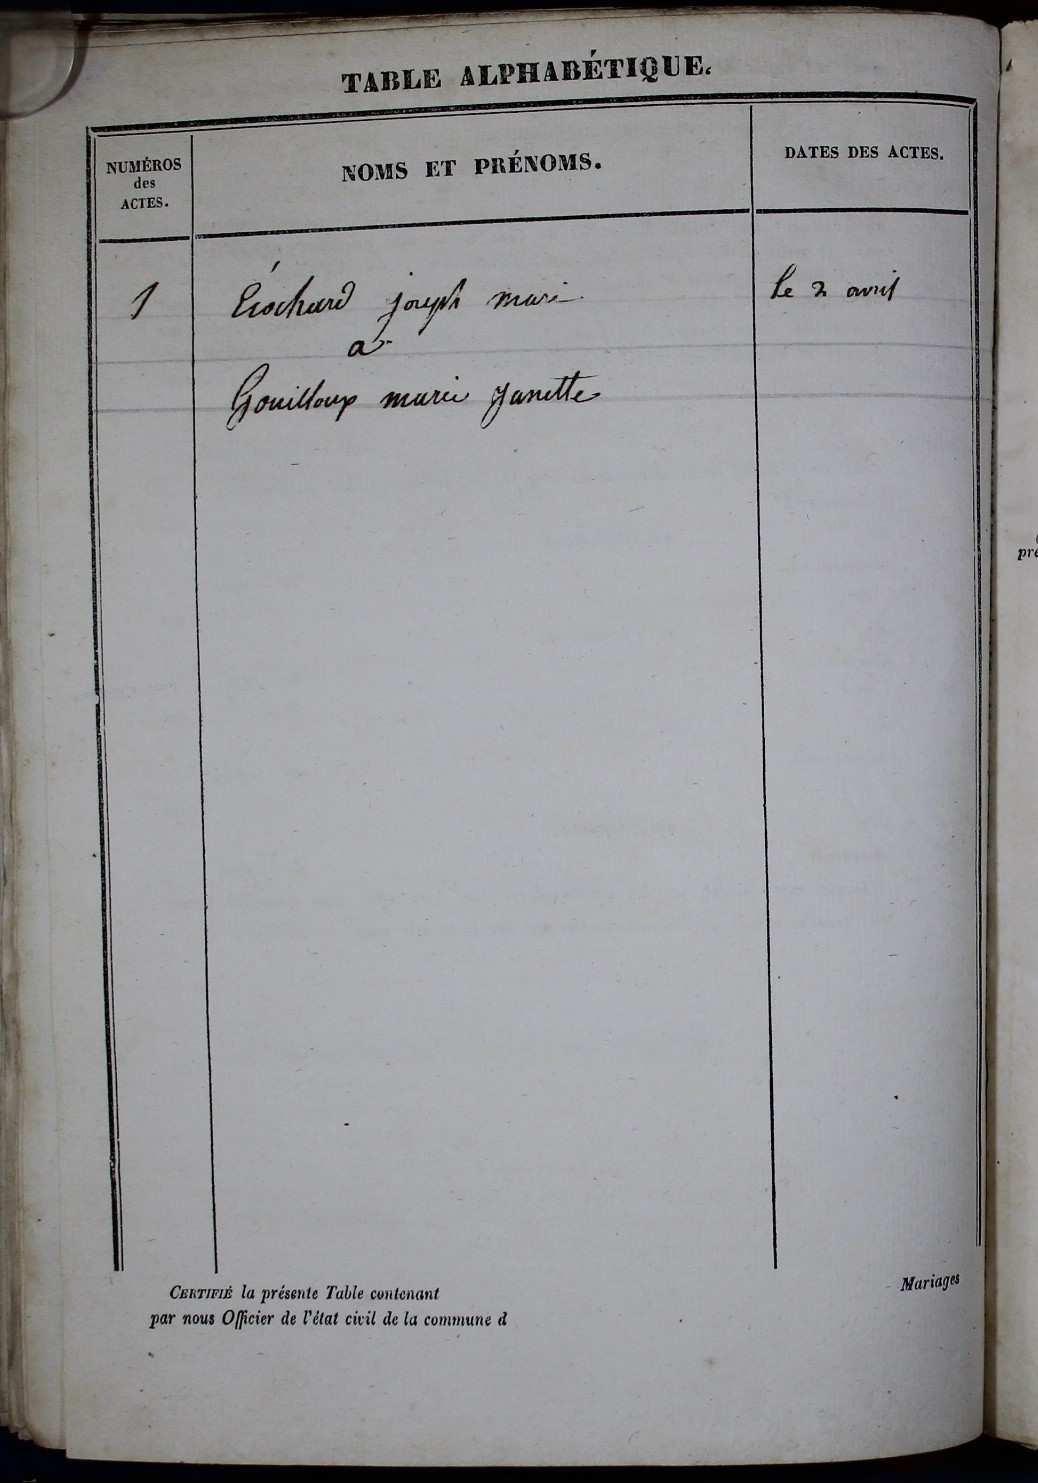 TABLE ALPHABÉTIQUE.
NUMÉROS
des
ACTES.
NOMS ET PRÉNOMS.
DATES DES ACTES.
1
joseph marie
Le 2 avril
a
Gouilloux marie Janette
CERTIFIÉ la présente Table contenant
Mariages
par nous Officier de l'état civil de la commune d